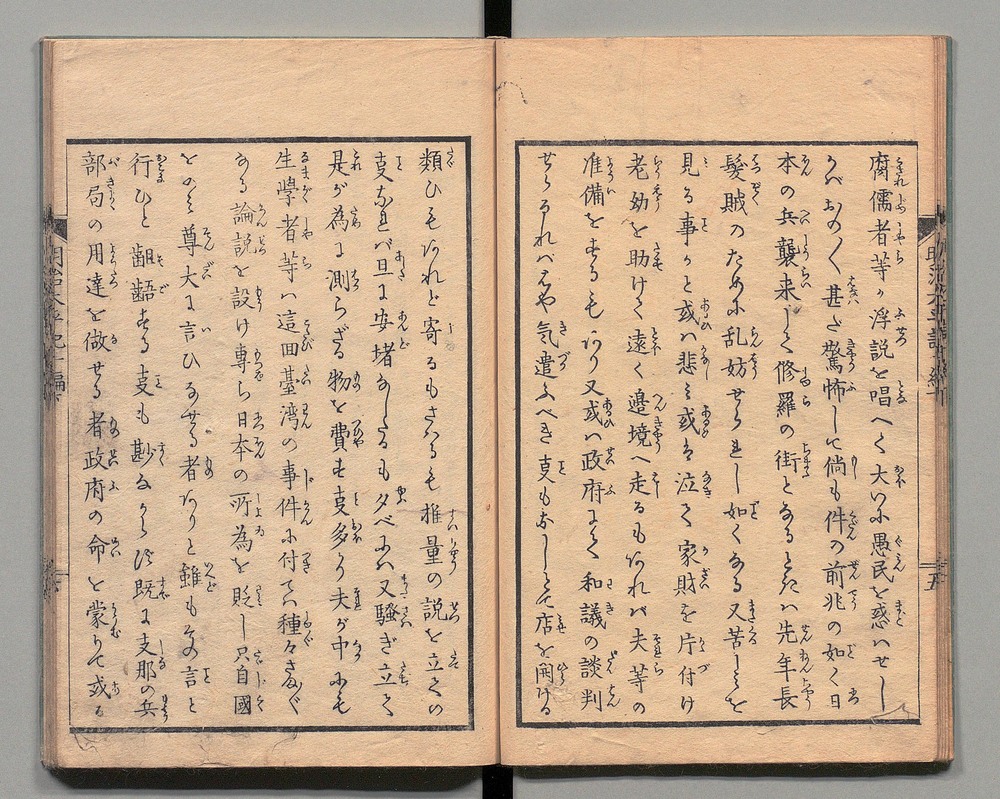 腐儒者等が浮説を唱へて大いに愚民を惑ハせし
かバおの〳〵甚だ驚怖して尚も件の前兆の如く日
本の兵襲来して修羅の街となるときハ先年長
髪賊のために乱妨せられし如くなる又苦しミを
見る事かと或ハ悲ミ或は泣て家財を片付け
老幼を助けて遠く邉境へ走るもあれハ夫等の
准備をするもあり又或ハ政府にて和議の談判
せらるれバはや気遣ふべき支もなしとて店を開ける
類ひもあれど寄るもさはるも推量の説を立るの
支なれバ旦に安堵なしたるも夕べにハ又騒ぎ立て
是が為に測らざる物を費す支多かり夫が中にも
生学者等ハ這回臺湾の事件に付てハ種々さま〴〵
なる論説を設け専ら日本の所為を貶し只自國
をのミ尊大に言ひなせる者ありと雖もその言と
行ひと齟齬する支も尠なからず既に支那の兵
部局の用達を做せる者政府の命を蒙りて或る
明治太平記十編下
五